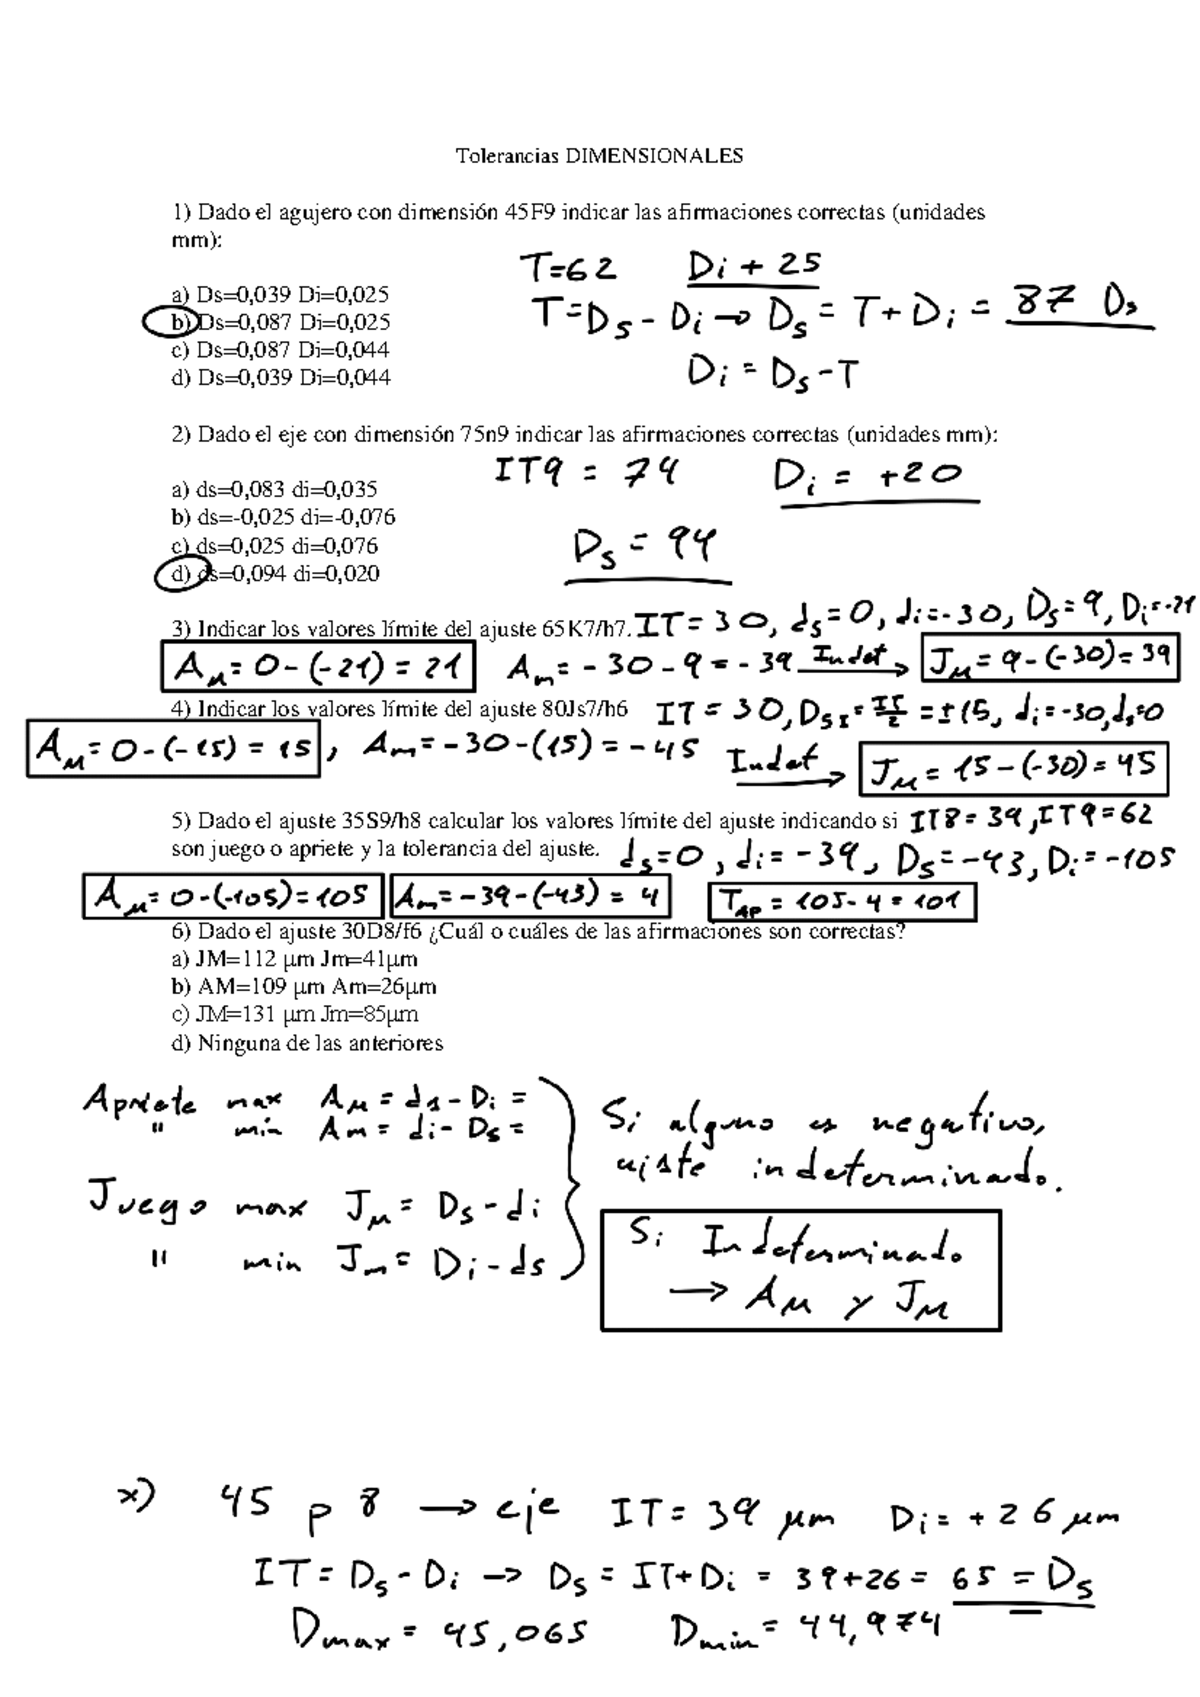 Tolerancias DIMENSIONALES
1) Dado el agujero con dimensión 45F9 indicar las afirmaciones correctas (unidades
mm):
T=62 Di + 25
a) Ds=0,039 Di=0,025
T=Ds - Di → Ds = T + Di = 87 Ds
b) Ds=0,087 Di=0,025
c) Ds=0,087 Di=0,044
Di = Ds - T
d) Ds=0,039 Di=0,044
2) Dado el eje con dimensión 75n9 indicar las afirmaciones correctas (unidades mm):
IT9 = 74 Di = +20
a) ds=0,083 di=0,035
b) ds=-0,025 di=-0,076
c) ds=0,025 di=0,076
Ds = 94
d) ds=0,094 di=0,020
3) Indicar los valores límite del ajuste 65K7/h7. IT = 30, ds=0, di=-30, Ds=9, Di=-21
AM = 0-(-21) = 21 Am = -30-9 = -39 Indet → JM = 9-(-30) = 39
4) Indicar los valores límite del ajuste 80Js7/h6 IT = 30, DsI = IT/2 = ±15, di=-30, ds=0
AM = 0-(-15) = 15, Am = -30-(15) = -45 Indet → JM = 15-(-30) = 45
5) Dado el ajuste 35S9/h8 calcular los valores límite del ajuste indicando si IT8 = 39, IT9 = 62
son juego o apriete y la tolerancia del ajuste. ds=0, di=-39, Ds=-43, Di=-105
AM = 0-(-105) = 105 Am = -39-(-43) = 4 TAP = 105-4 = 101
6) Dado el ajuste 30D8/f6 ¿Cuál o cuáles de las afirmaciones son correctas?
a) JM=112 µm Jm=41µm
b) AM=109 µm Am=26µm
c) JM=131 µm Jm=85µm
d) Ninguna de las anteriores
Apriete max AM = ds - Di =
" min Am = di - Ds =
Juego max JM = Ds - di
" min Jm = Di - ds
Si alguno es negativo,
ajste indeterminado.
Si Indeterminado
→ AM y JM
x) 45 p 8 → eje IT = 39 µm Di = +26 µm
IT = Ds - Di → Ds = IT+Di = 39+26 = 65 = Ds
Dmax = 45,065 Dmin = 44,974